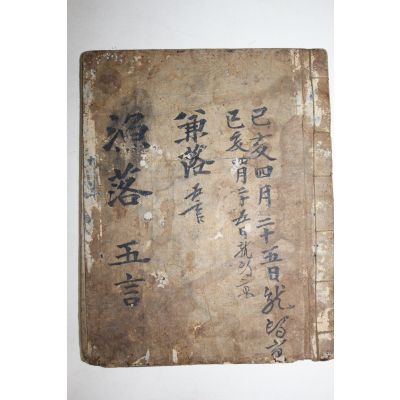 己亥四月二十五日龍
己亥四月二十五日龍
兼落 五言
濂落 五言